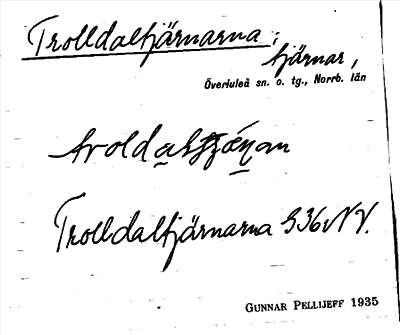 Trolldaltjärnarna;
tjärnar,
Överluleå sn. o. tg., Norrb. län
Trolldaltjärnarna S36NV.
GUNNAR PELLIJEFF 1935